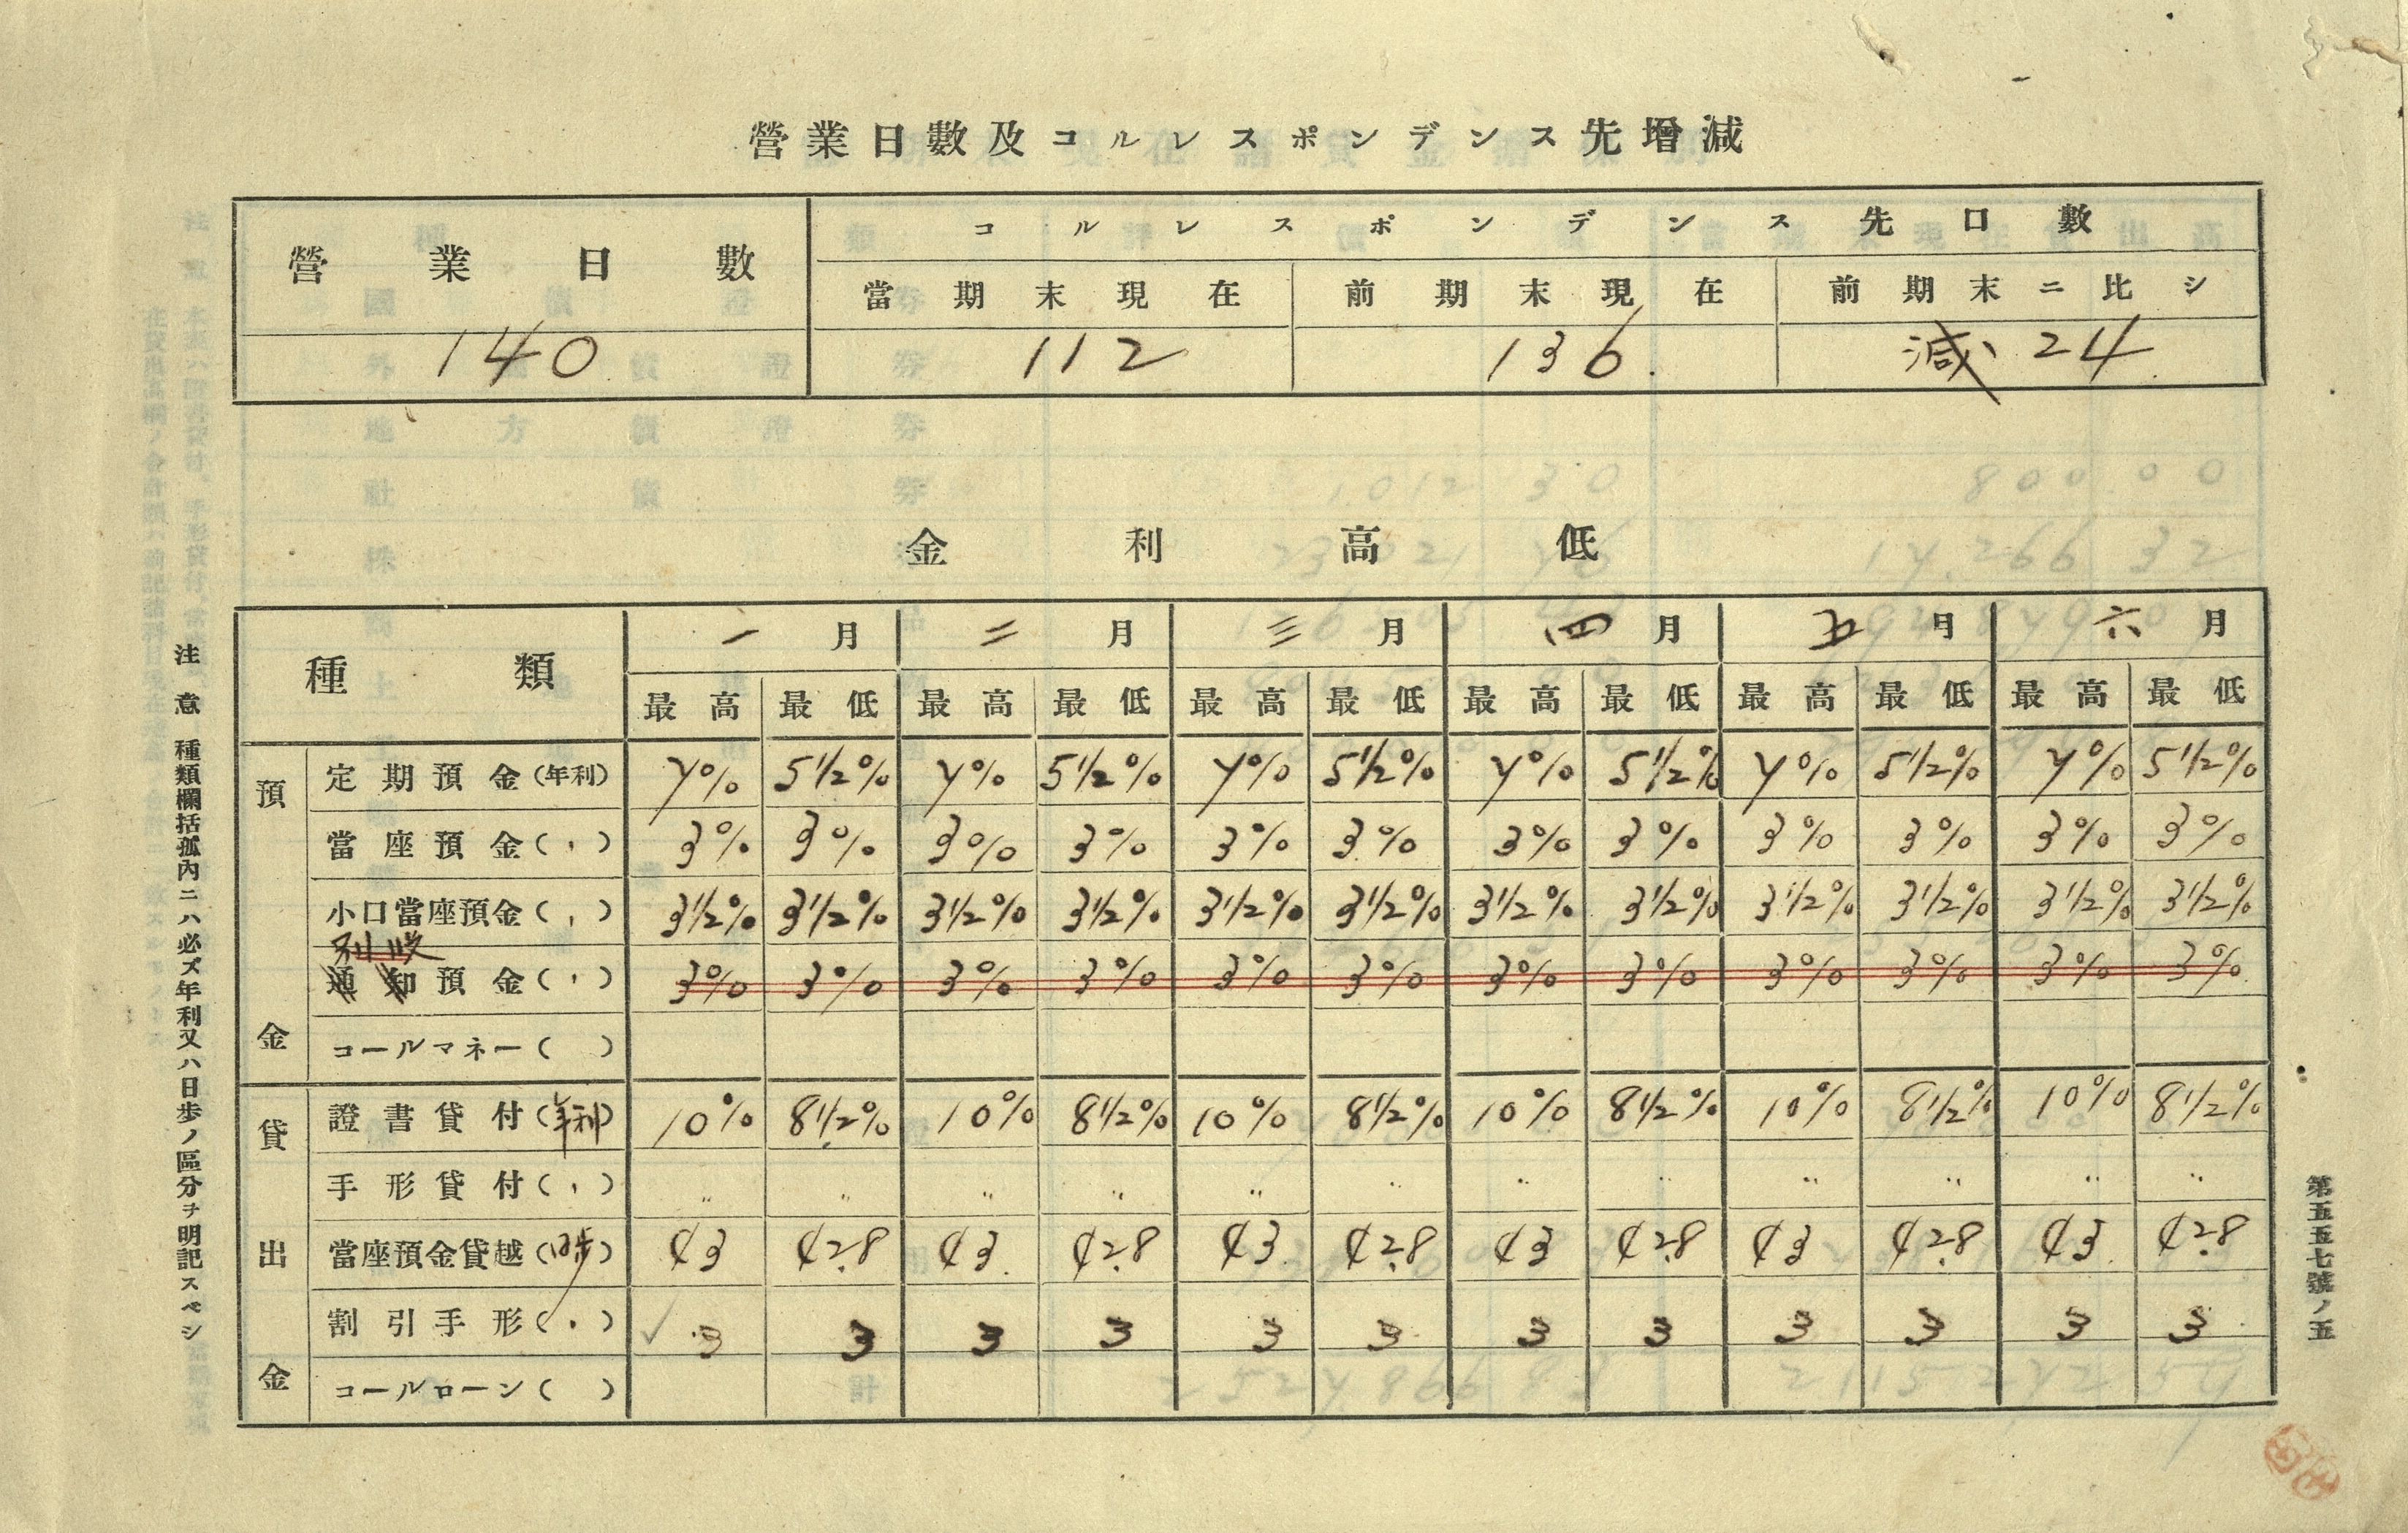 營業日數及コルレスポンデンス先增減
營業日數
コルレスポンデンス先口數
當期末現在 前期末現在 前期末ニ比シ
140 112 136. 減 24
金利高低
種類 一月 二月 三月 四月 五月 六月
最高 最低 最高 最低 最高 最低 最高 最低 最高 最低 最高 最低
預金
定期預金(年利) 7% 5 1/2% 7% 5 1/2% 7% 5 1/2% 7% 5 1/2% 7% 5 1/2% 7% 5 1/2%
當座預金(〃) 3% 3% 3% 3% 3% 3% 3% 3% 3% 3% 3% 3%
小口當座預金(〃) 3 1/2% 3 1/2% 3 1/2% 3 1/2% 3 1/2% 3 1/2% 3 1/2% 3 1/2% 3 1/2% 3 1/2% 3 1/2% 3 1/2%
別段
通知預金(〃) 3% 3% 3% 3% 3% 3% 3% 3% 3% 3% 3% 3%
コールマネー( )
貸出金
證書貸付(年利) 10% 8 1/2% 10% 8 1/2% 10% 8 1/2% 10% 8 1/2% 10% 8 1/2% 10% 8 1/2%
手形貸付(〃) 〃 〃 〃 〃 〃 〃 〃 〃 〃 〃 〃 〃
當座預金貸越(日歩) ¢3 ¢2.8 ¢3 ¢2.8 ¢3 ¢2.8 ¢3 ¢2.8 ¢3 ¢2.8 ¢3 ¢2.8
割引手形(〃) ✓ 3 3 3 3 3 3 3 3 3 3 3 3
コールローン( )
注意 種類欄括孤內ニハ必ズ年利又ハ日歩ノ區分ヲ明記スベシ
第五五七號ノ五